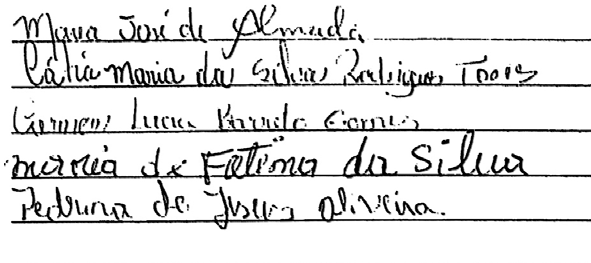 Maria José de Almada
Cátia Maria da Silva Rodrigues Torres
Lucia Gomes
maria de Fatima da Silva
de Jesus oliveira.